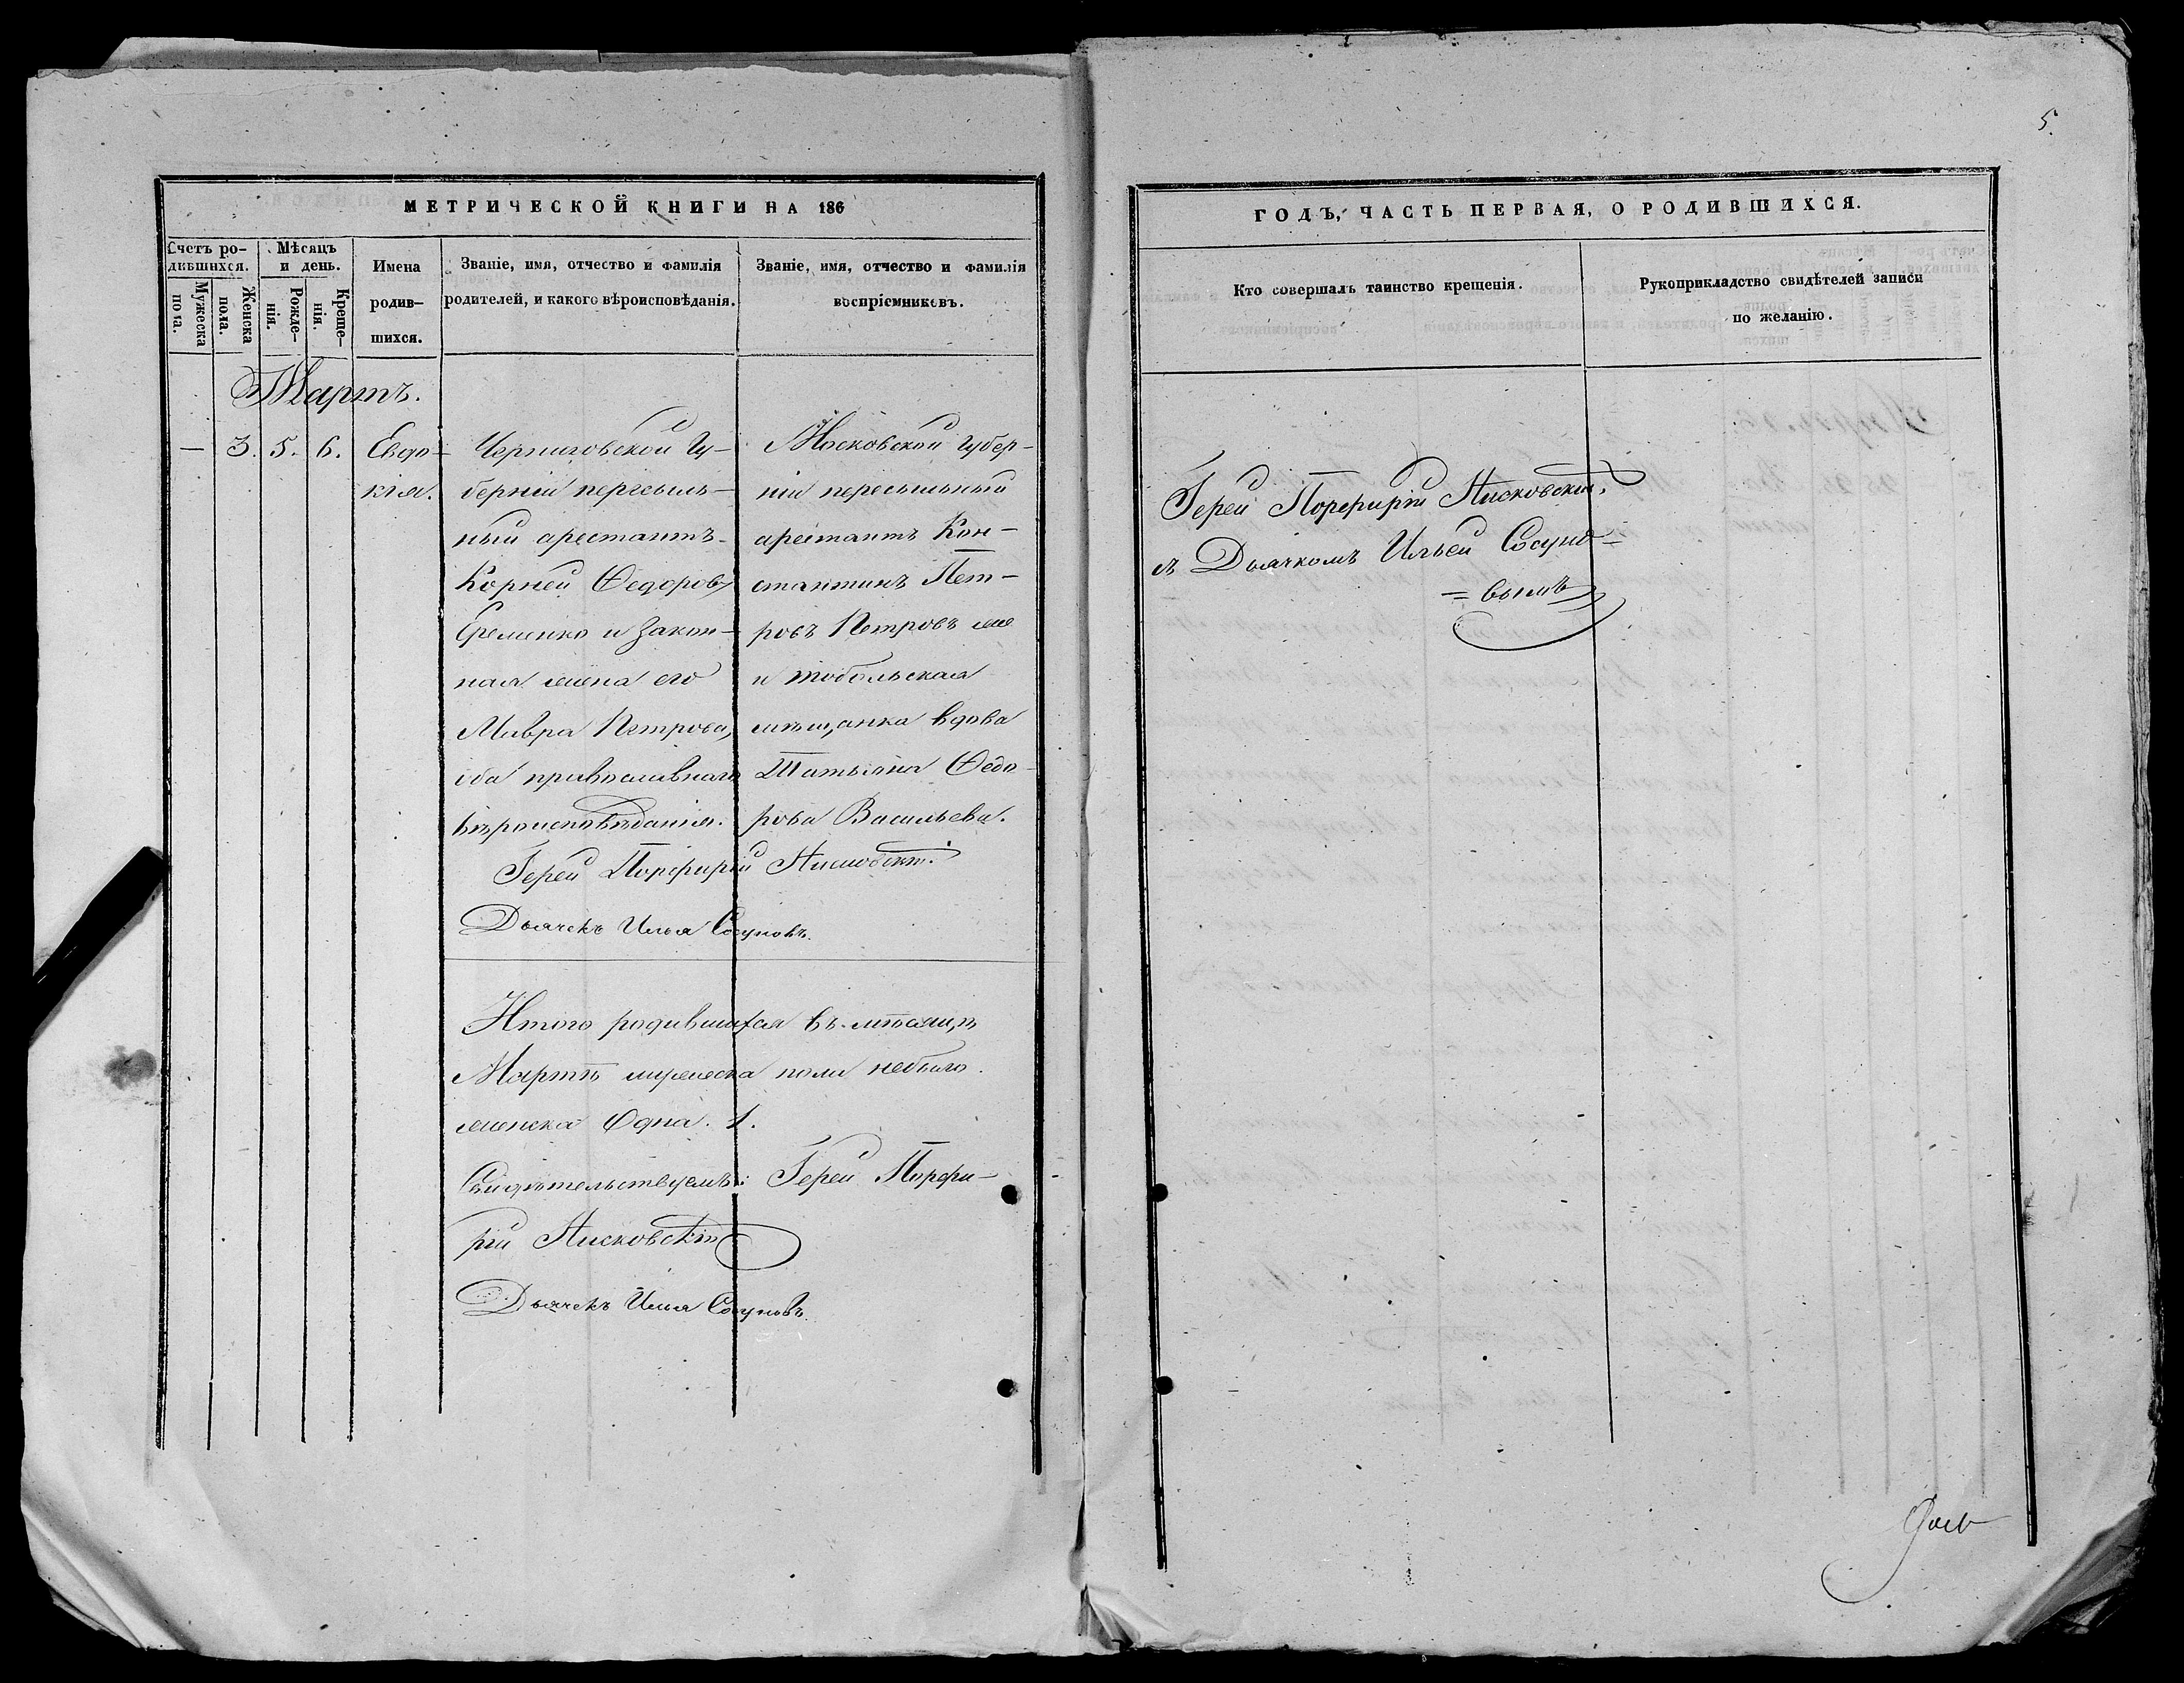 5.
МЕТРИЧЕСКОЙ КНИГИ НА 186
Счетъ ро-
дившихся.
Мужеска
пола.
Женска
пола.
Мѣсяцъ
и день.
Рожде-
нія.
Креще-
нія.
Имена
родив-
шихся.
Званіе, имя, отчество и фамилія
родителей, и какого вѣроисповѣданія.
Званіе, имя, отчество и фамилія
воспріемниковъ.
Мартъ.
— 3. 5. 6.
Евдо-
кія.
Черниговской Гу-
берніи пересыль-
ный арестантъ
Корней Ѳедоровъ
Еременко и закон-
ная жена его
Мавра Петрова,
оба православнаго
вѣроисповѣданія.
Московской Губер-
ніи пересыльный
арестантъ Кон-
стантинъ Пет-
ровъ Петровъ же
и тобольская
мѣщанка вдова
Татьяна Ѳедо-
рова Васильева.
Іерей Порфирій
Дьячекъ Илья Сосуновъ.
Итого родившихся въ мѣсяцѣ
Мартѣ мужеска пола небыло
женска Одна. 1.
Свидѣтельствуемъ: Іерей Порфи-
рій
Дьячекъ Илья Сосуновъ.
ГОДЪ, ЧАСТЬ ПЕРВАЯ, О РОДИВШИХСЯ.
Кто совершалъ таинство крещенія.
Рукоприкладство свидѣтелей записи
по желанію.
Іерей Порфирій
съ Дьячкомъ Ильей Сосуно=
=вымъ